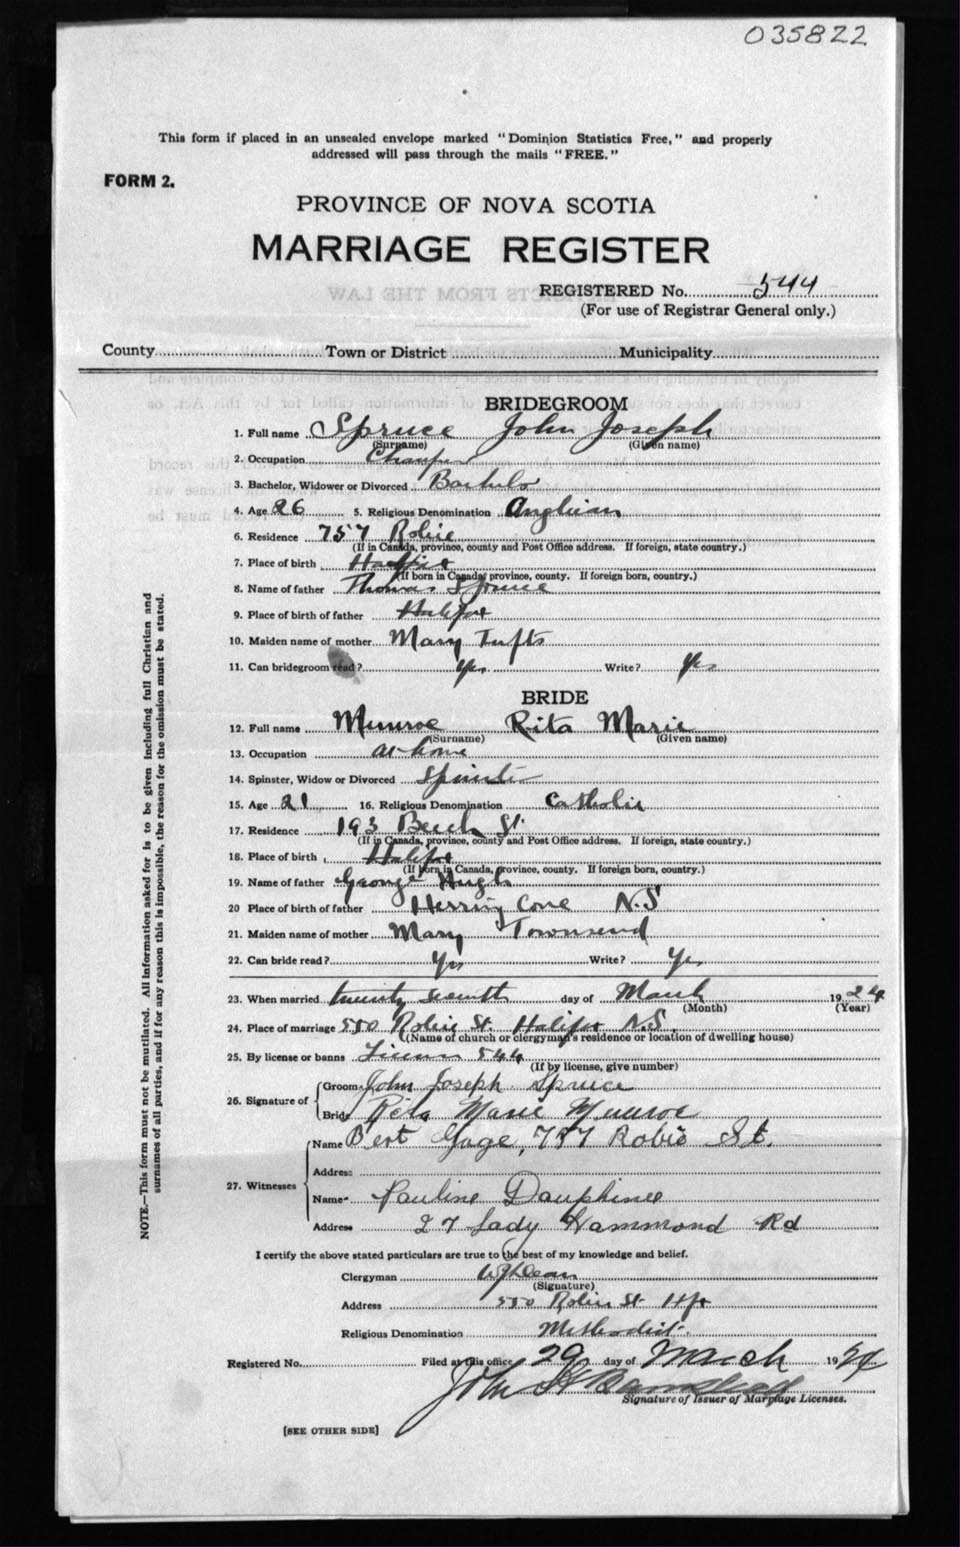 035822
This form if placed in an unsealed envelope marked "Dominion Statistics Free," and properly
addressed will pass through the mails "FREE."
FORM 2.
PROVINCE OF NOVA SCOTIA
MARRIAGE REGISTER
REGISTERED No. 544
(For use of Registrar General only.)
County Town or District Municipality
BRIDEGROOM
1. Full name Spruce John Joseph
(Surname) (Given name)
2. Occupation
3. Bachelor, Widower or Divorced Bachelor
4. Age 26 5. Religious Denomination Anglican
6. Residence 757 Robie
(If in Canada, province, county and Post Office address. If foreign, state country.)
7. Place of birth Halifax
(If born in Canada, province, county. If foreign born, country.)
8. Name of father Thomas Spruce
9. Place of birth of father Halifax
10. Maiden name of mother Mary Tufts
11. Can bridegroom read? Yes Write? Yes
BRIDE
12. Full name Munroe Rita Marie
(Surname) (Given name)
13. Occupation at home
14. Spinster, Widow or Divorced Spinster
15. Age 21 16. Religious Denomination Catholic
17. Residence 193 Beech St.
(If in Canada, province, county and Post Office address. If foreign, state country.)
18. Place of birth Halifax
(If born in Canada, province, county. If foreign born, country.)
19. Name of father George Hugh
20 Place of birth of father Herring Cove N.S
21. Maiden name of mother Mary Townsend
22. Can bride read? Yes Write? Yes
23. When married twenty seventh day of March 1924
(Month) (Year)
24. Place of marriage 550 Robie St. Halifax N.S.
(Name of church or clergyman's residence or location of dwelling house)
25. By license or banns License 544
(If by license, give number)
26. Signature of Groom John Joseph Spruce
Bride Rita Marie Munroe
27. Witnesses Name Bert Gage, 757 Robie St.
Address
Name Pauline Dauphinee
Address 27 Lady Hammond Rd
I certify the above stated particulars are true to the best of my knowledge and belief.
Clergyman
(Signature)
Address 550 Robie St Hfx
Religious Denomination Methodist.
Registered No. Filed at this office 29 day of March 1924
John
Signature of Issuer of Marriage Licenses.
[SEE OTHER SIDE]
NOTE.—This form must not be mutilated. All information asked for is to be given including full Christian and
surnames of all parties, and if for any reason this is impossible, the reason for the omission must be stated.